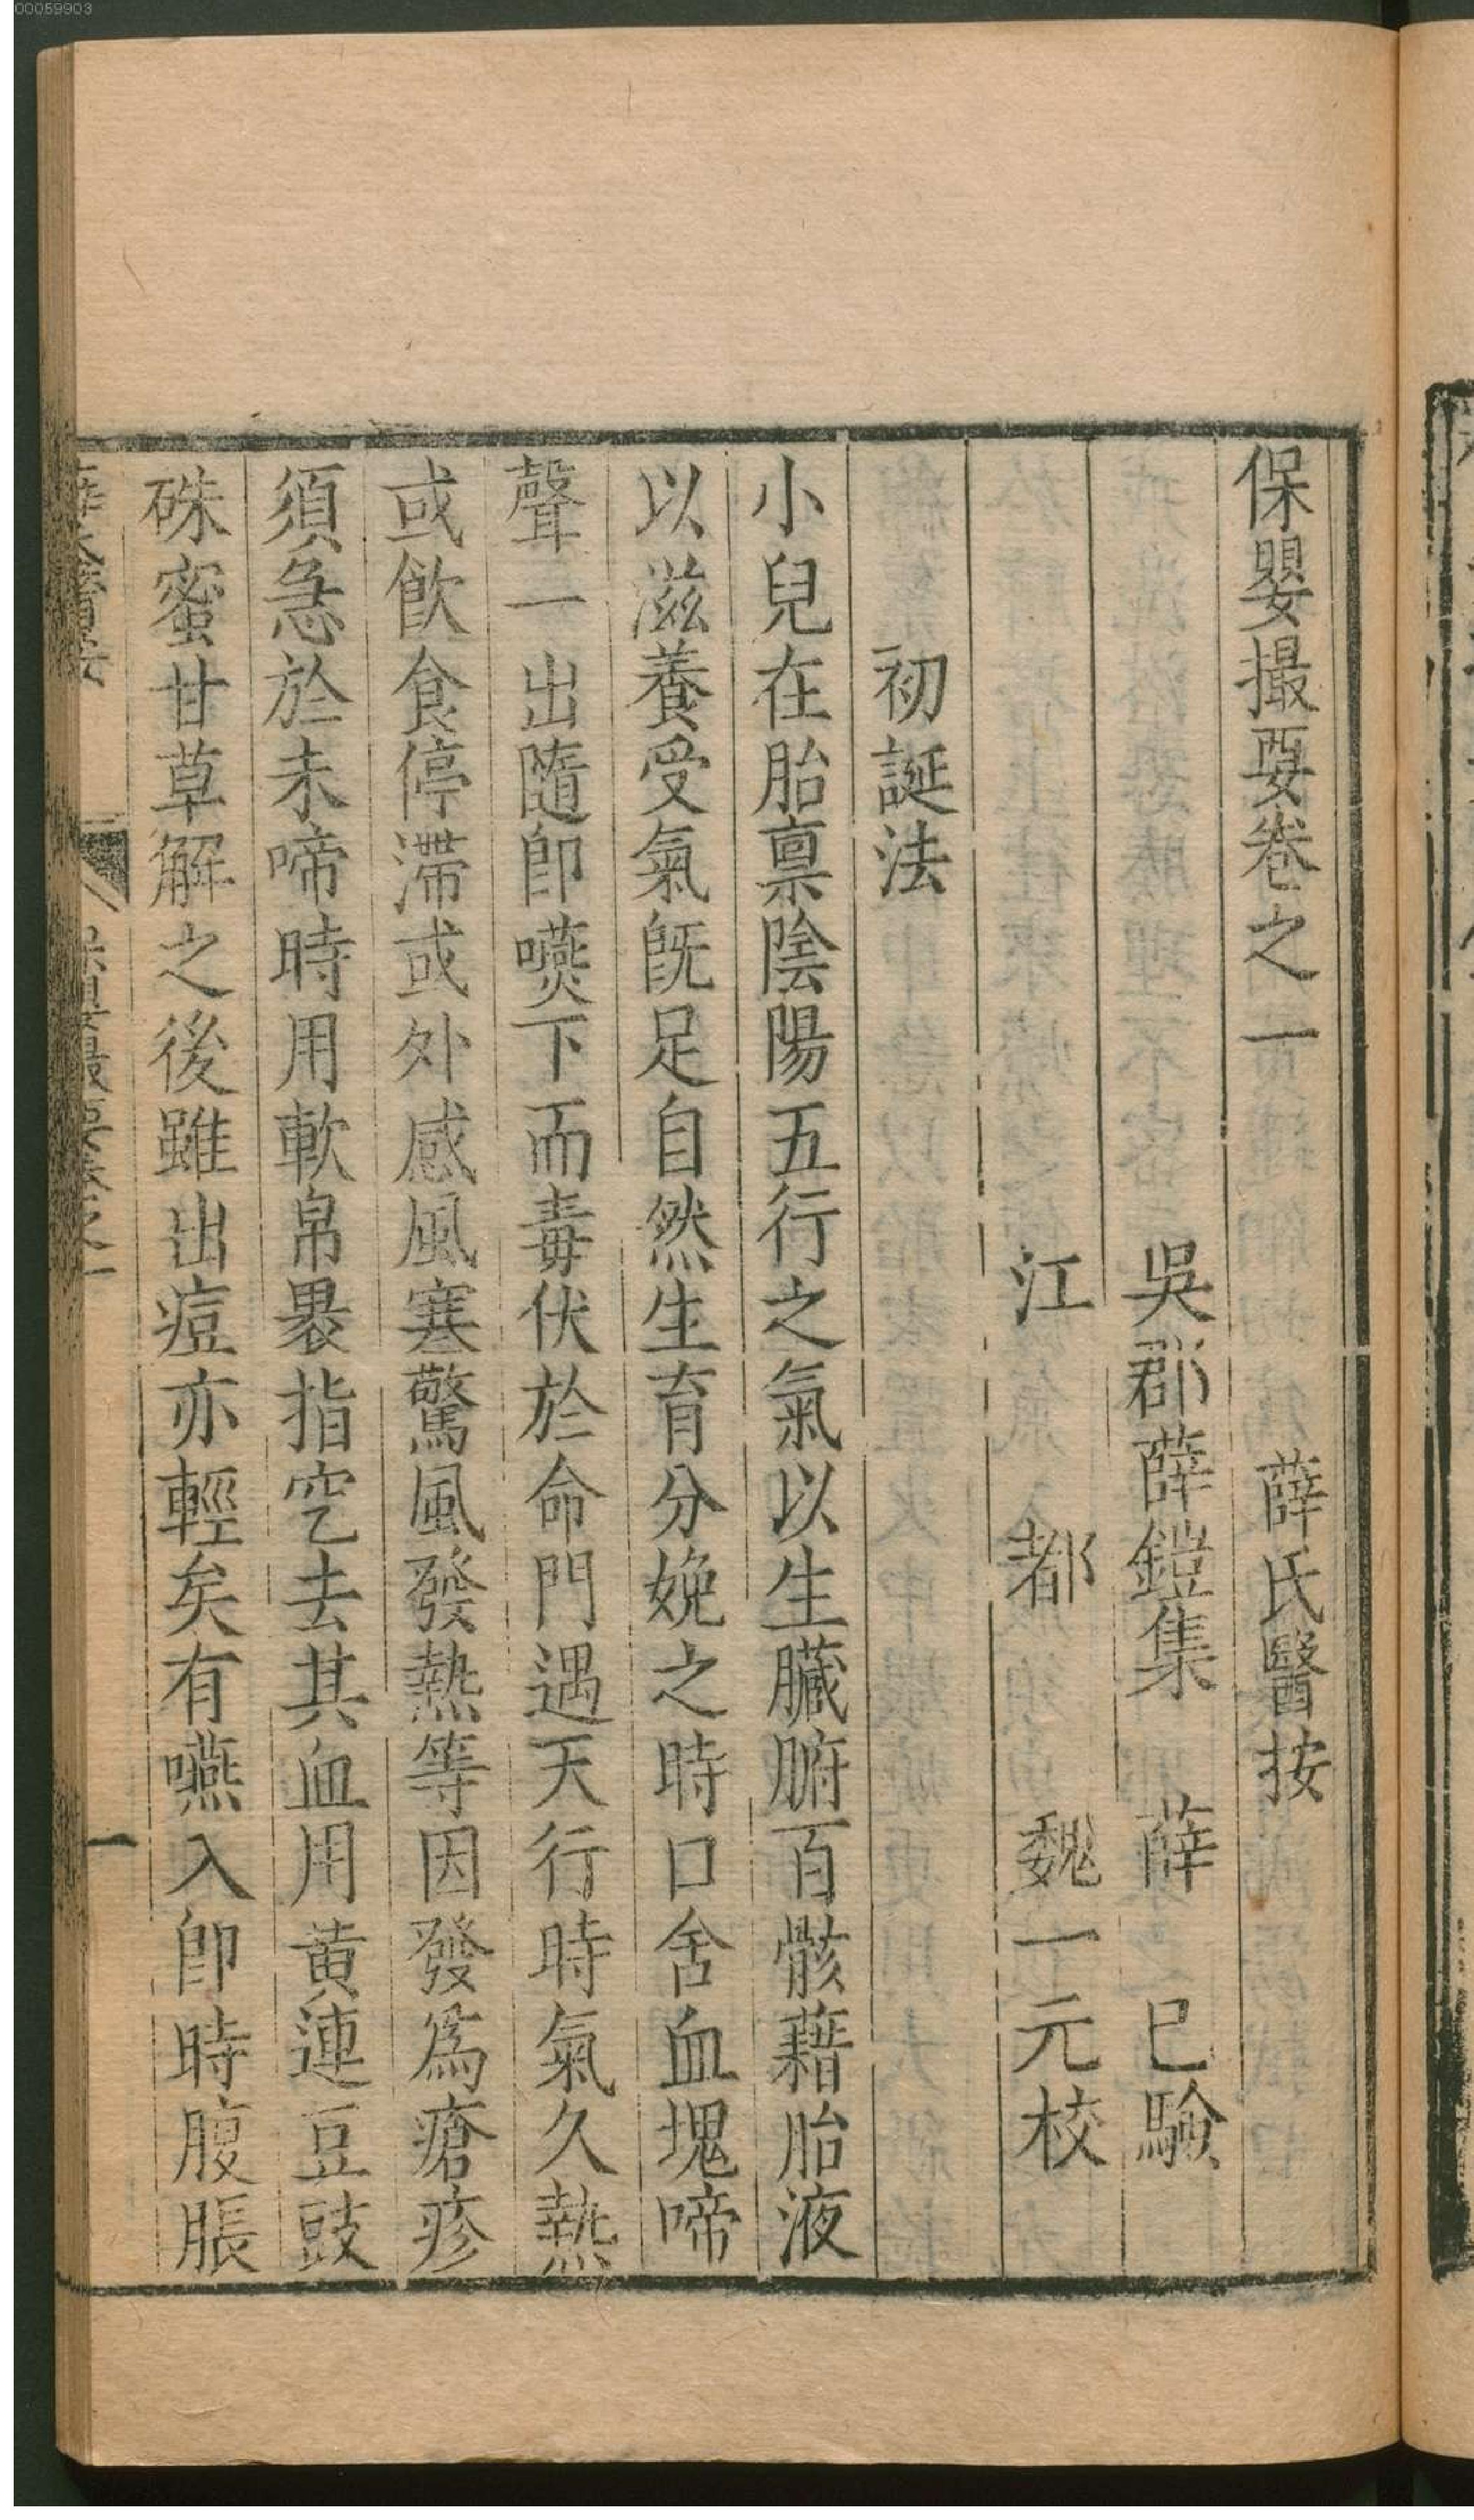 00059903
保嬰撮要卷之一　薛氏醫按
吳郡薛鎧集　薛　已驗
江　都　魏一元校
初誕法
小兒在胎禀陰陽五行之氣以生臟腑百骸藉胎液
以滋養受氣旣足自然生育分娩之時口含血塊啼
聲一出隨卽嚥下而毒伏於命門遇天行時氣久熱
或飲食停滯或外感風寒驚風發熱等因發爲瘡疹
須急於未啼時用軟帛裹指空去其血用黄連豆豉
硃蜜甘草解之後雖出痘亦輕矣有嚥入卽時腹脹
保嬰撮要卷之一
一